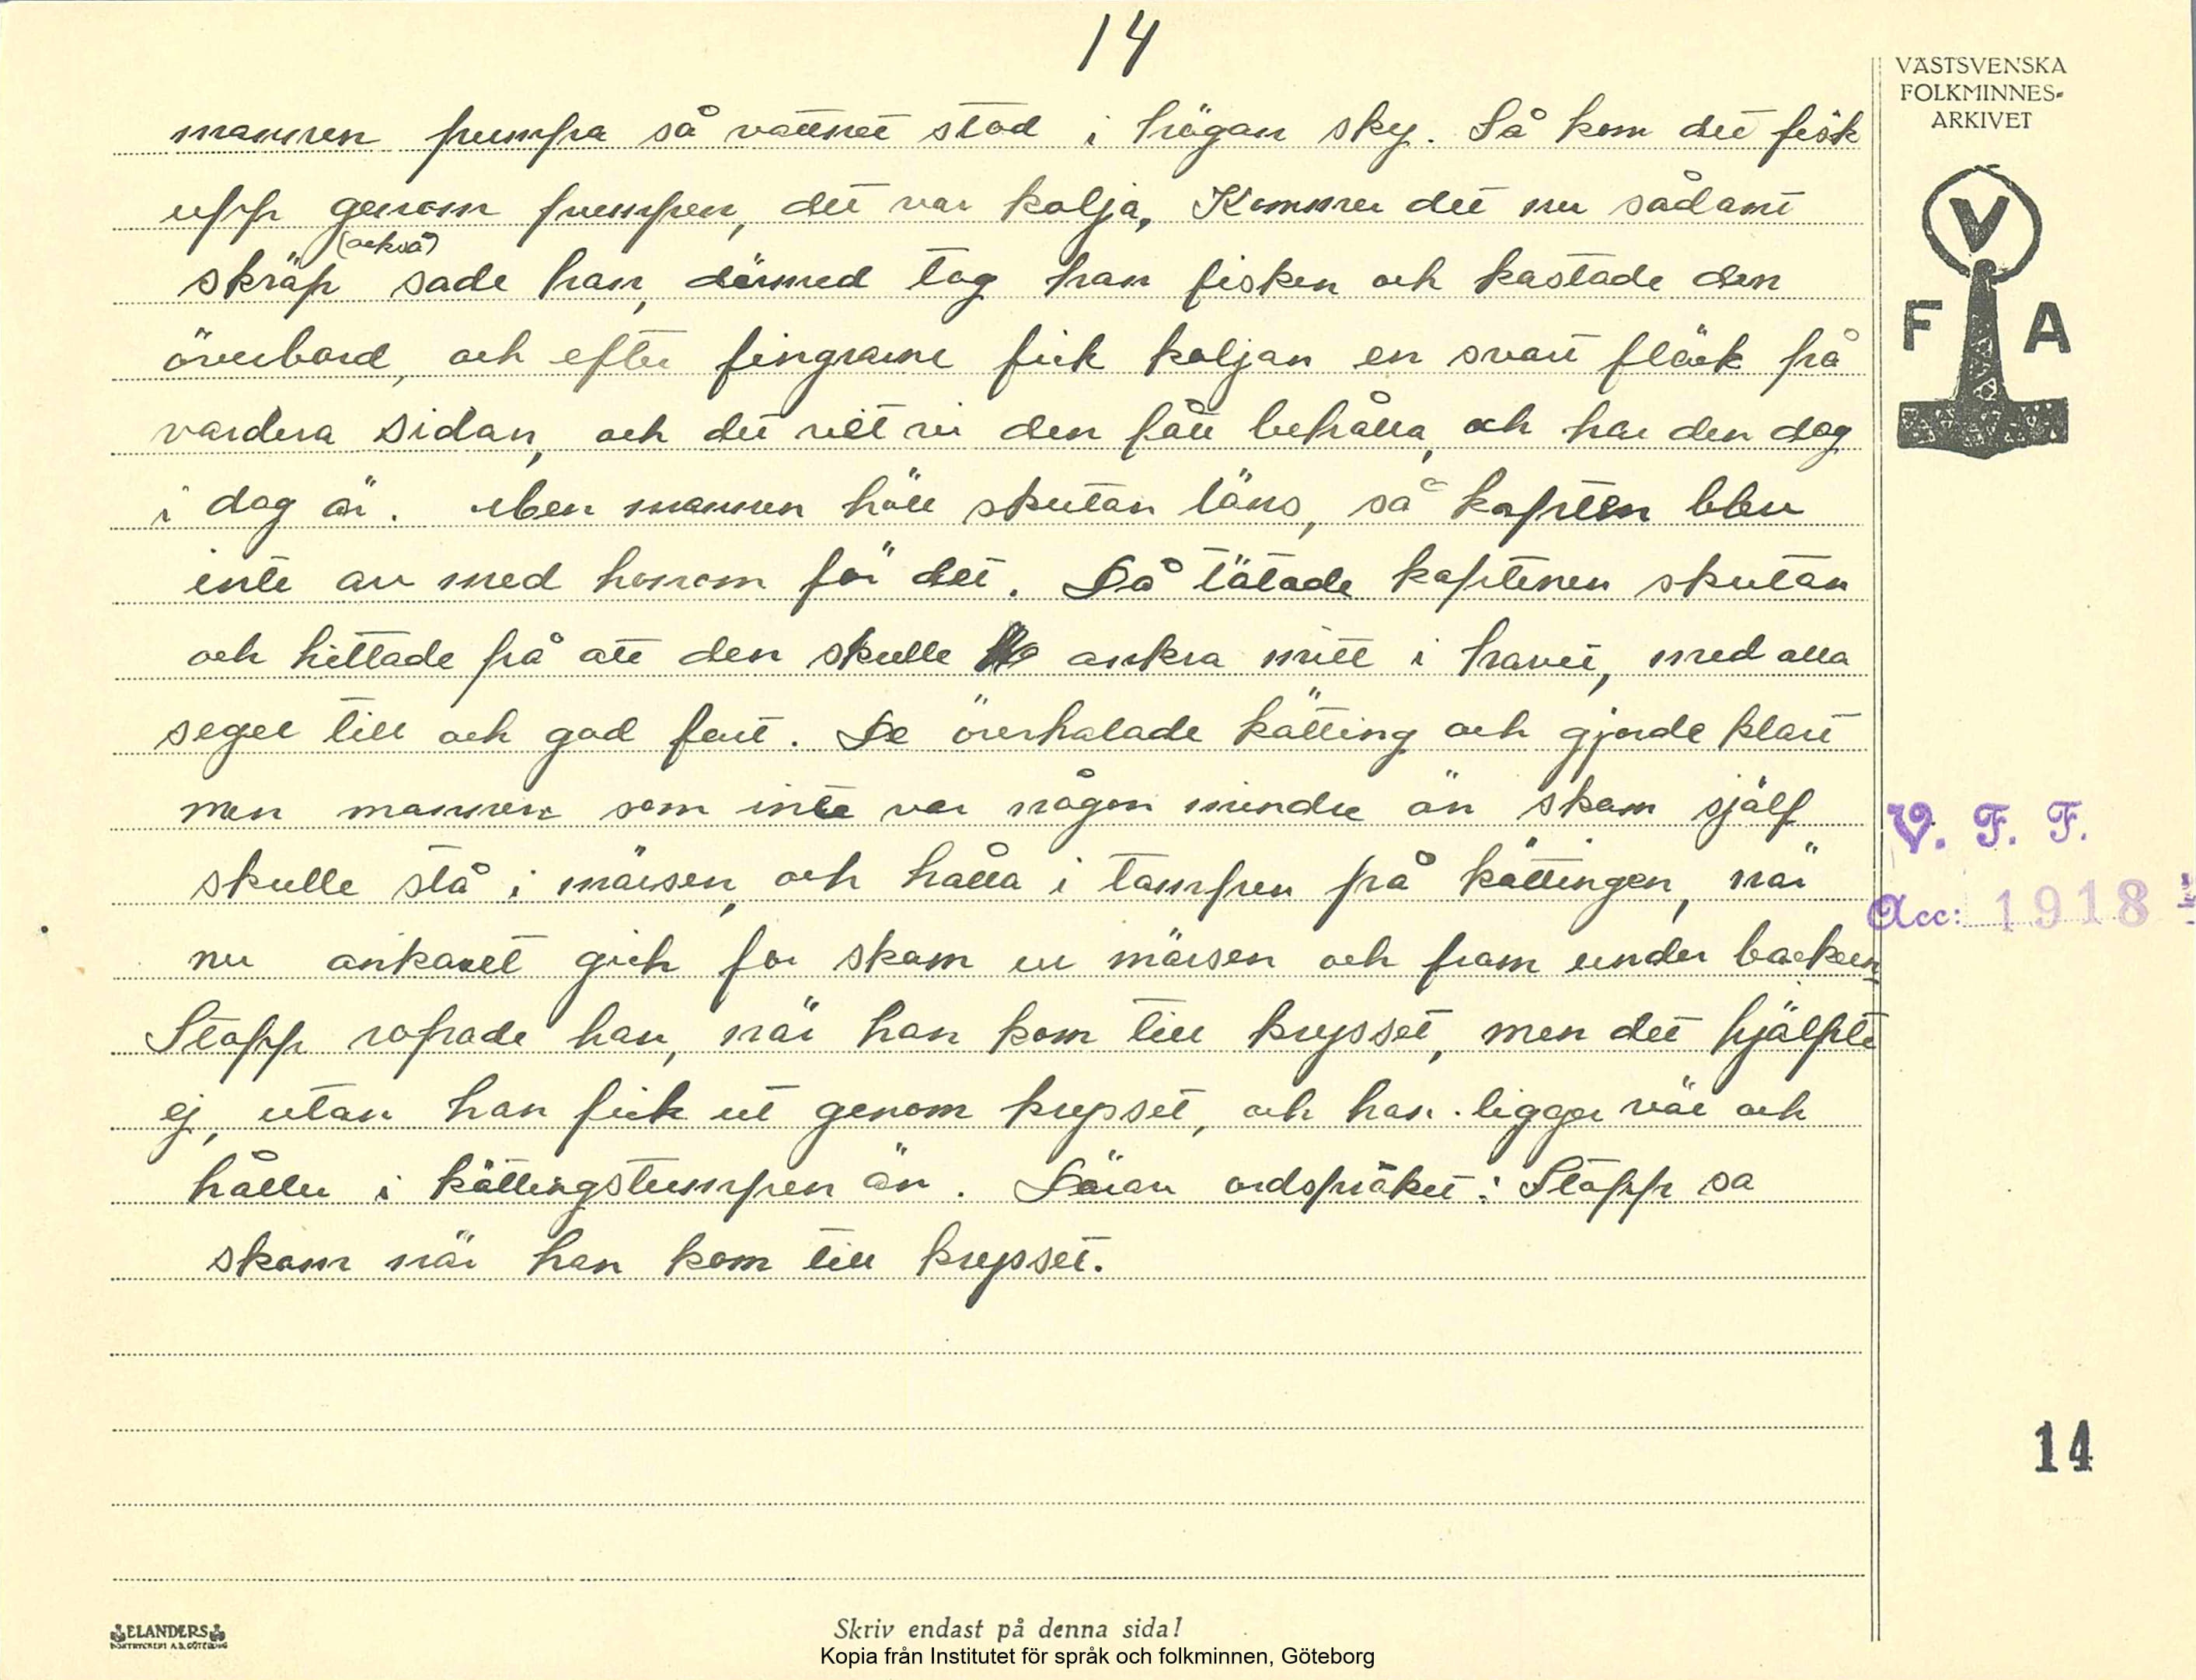 14
VÄSTSVENSKA
FOLKMINNES-
ARKIVET
mannen pumpa så vattnet stod i högan sky. Så kom det fisk
upp genom pumpen, det var kolja. Kommer det nu sådant
(också)
skräp sade han, därmed tog han fisken och kastade den
överbord, och efter fingrarne fick koljan en svart fläck på
vardera sidan, och det vill vi den fått behålla, och har den dag
i dag är. Men mannen höll skutan läns, så kapten blev
inte av med honom för det. Då tätade kaptenen skutan
och hittade på att den skulle ankra mitt i havet, med alla
segel till och god fart. De överhalade kätting och gjorde klart
men mannen som inte var någon mindre än skam själf
skulle stå i märsen, och hålla i tampen på kättingen, när
nu ankaret gick for skam ur märsen och fram under backen
Stopp ropade han, när han kom till krysset, men det hjälpte
ej, utan han fick ut genom krysset, och han ligger väl och
håller i kättingstumpen än. Däran ordspråket: Stopp sa
skam när han kom till krysset.
V
F A
V. F. F.
Acc: 1918
14
ELANDERS
BOKTRYCKERI A.B. GÖTEBORG
Skriv endast på denna sida!
Kopia från Institutet för språk och folkminnen, Göteborg